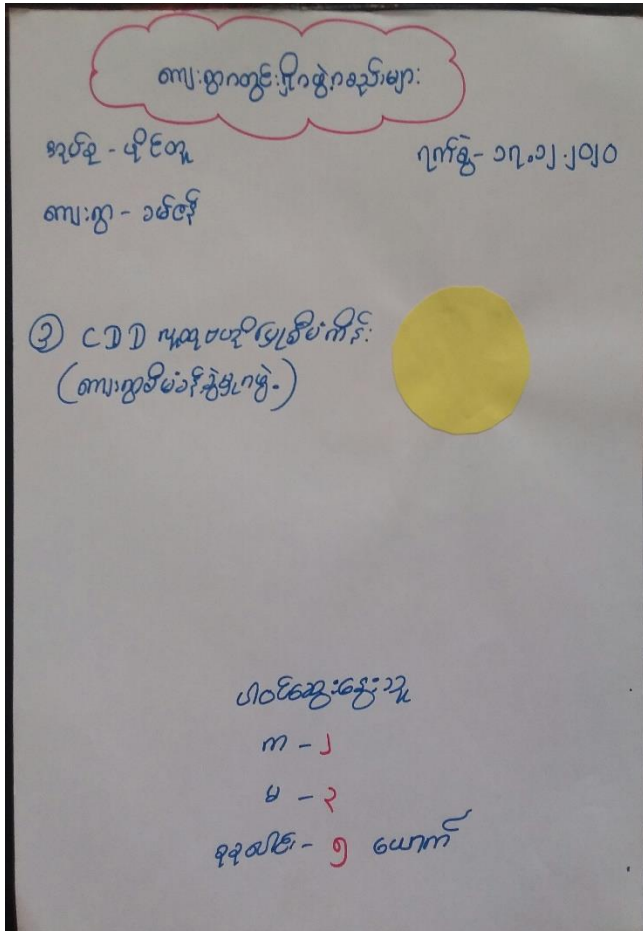 ကျေးရွာတွင်းရှိအဖွဲ့အစည်းများ
အုပ်စု - ဖိုင်တူ
ရက်စွဲ - ၁၇.၁၂.၂၀၂၀
ကျေးရွာ - ခမ်ဇန်
③ CDD လူထုဗဟိုပြုစီမံကိန်း
(ကျေးရွာစီမံခန့်ခွဲမှုအဖွဲ့)
ပါဝင်ဆွေးနွေးသူ
ကျ - ၂
မ - ၃
စုစုပေါင်း - ၅ ယောက်